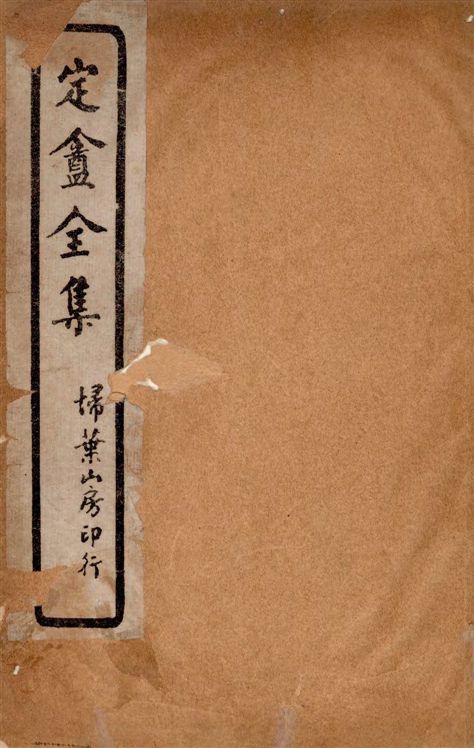 定盦全集
埽葉山房印行